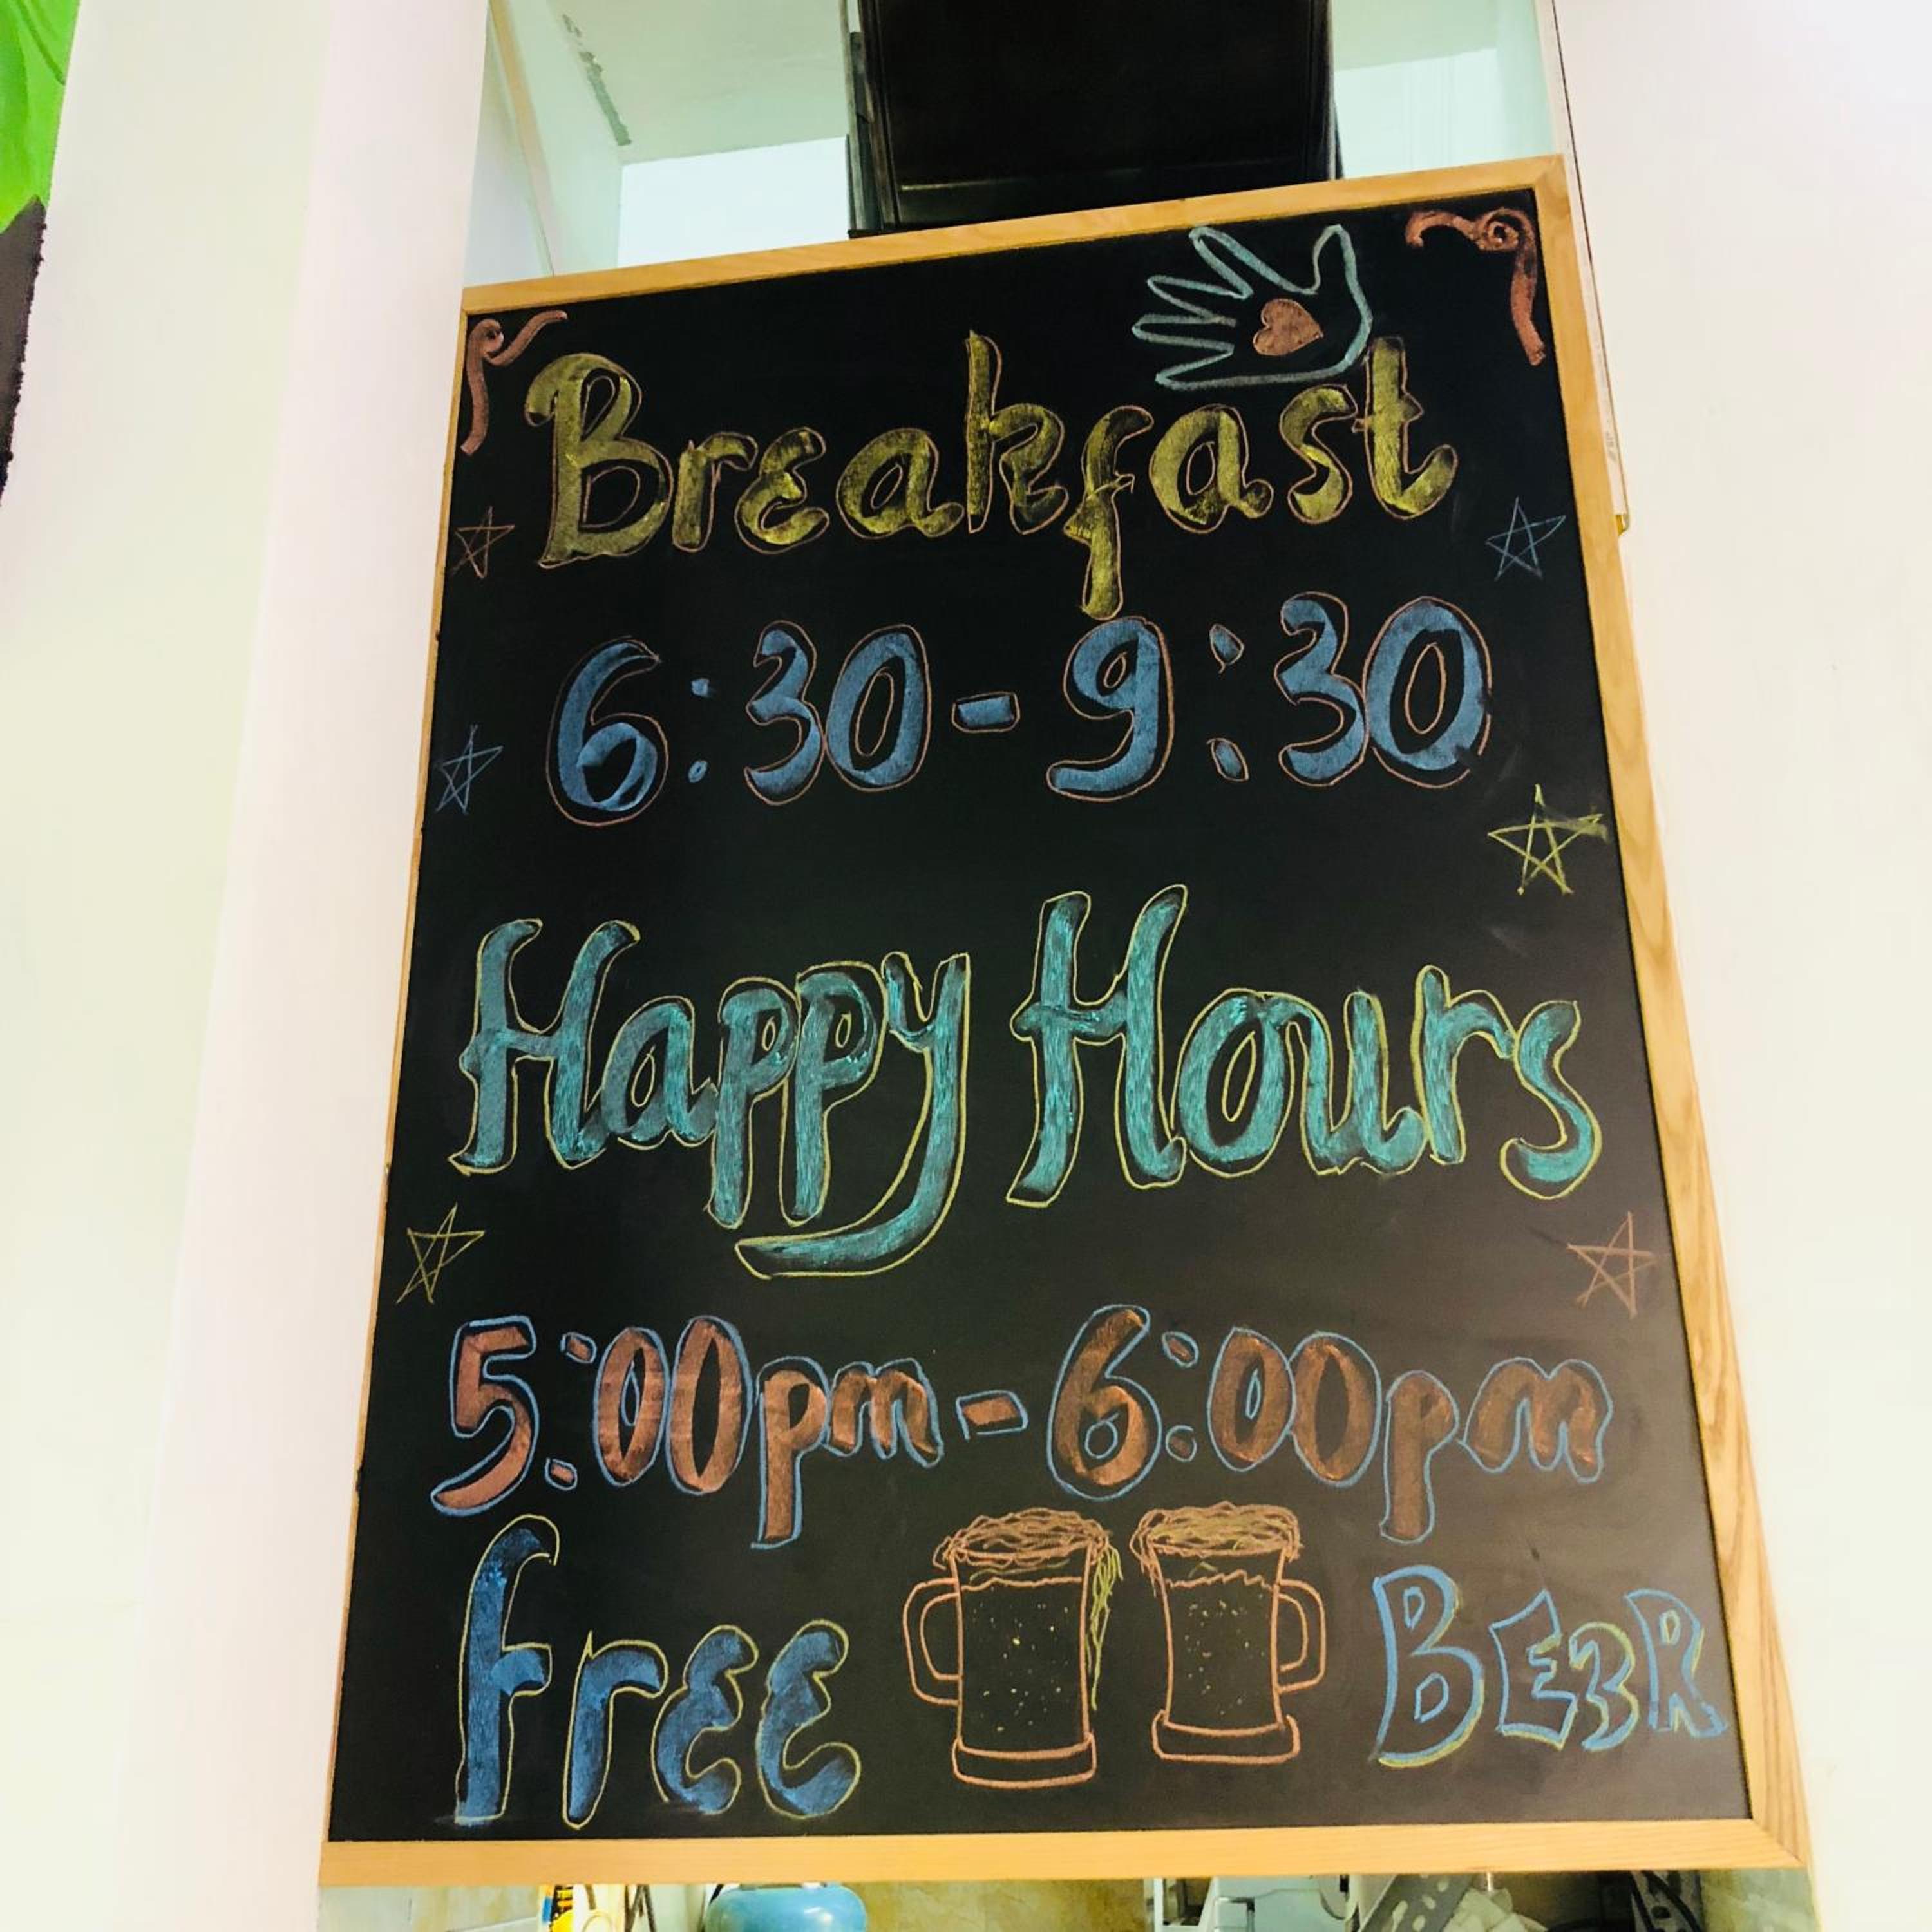 Breakfast
6:30-9:30
Happy Hours
5:00pm-6:00pm
Free BEER